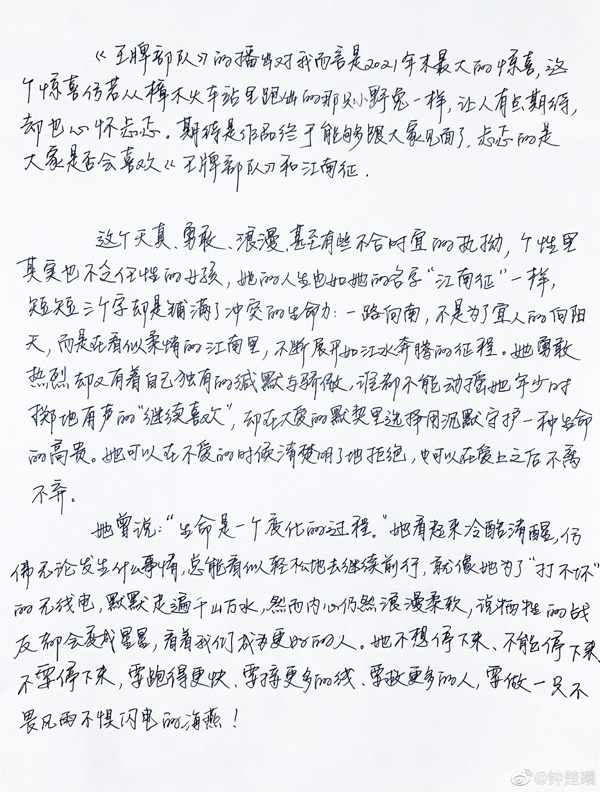 《王牌部队》的播出对我而言是2021年末最大的惊喜,这
个惊喜仿若从樟木火车站里跑出的那只小野兔一样,让人有点期待,
却也心怀忐忑。期待是作品终于能够跟大家见面了,忐忑的是
大家是否会喜欢《王牌部队》和江南征.
这个天真、勇敢、浪漫、甚至有些不合时宜的执拗,个性里
其实也不乏任性的女孩,她的人生也如她的名字“江南征”一样,
短短三个字却是铺满了冲突的生命力:一路向南,不是为了宜人的向阳
天,而是在看似柔情的江南里,不断展开如江水奔腾的征程。她勇敢
热烈却又有着自己独有的缄默与骄傲,谁都不能动摇她年少时
掷地有声的“继续喜欢”,却在大爱的默契里选择用沉默守护一种生命
的高贵。她可以在不爱的时候清楚明了地拒绝,也可以在爱上之后不离
不弃。
她曾说:“生命是一个废化的过程。”她看起来冷酷清醒,仿
佛无论发生什么事情,总能看似轻松地去继续前行,就像她为了“打不坏”
的无线电,默默走遍千山万水,然而内心仍然浪漫柔软,说牺牲的战
友都会变成星星,看着我们成为更好的人。她不想停下来、不能停下来
不要停下来,要跑得更快、要接更多的线、要救更多的人,要做一只不
畏风雨不惧闪电的海燕!
@钟楚曦